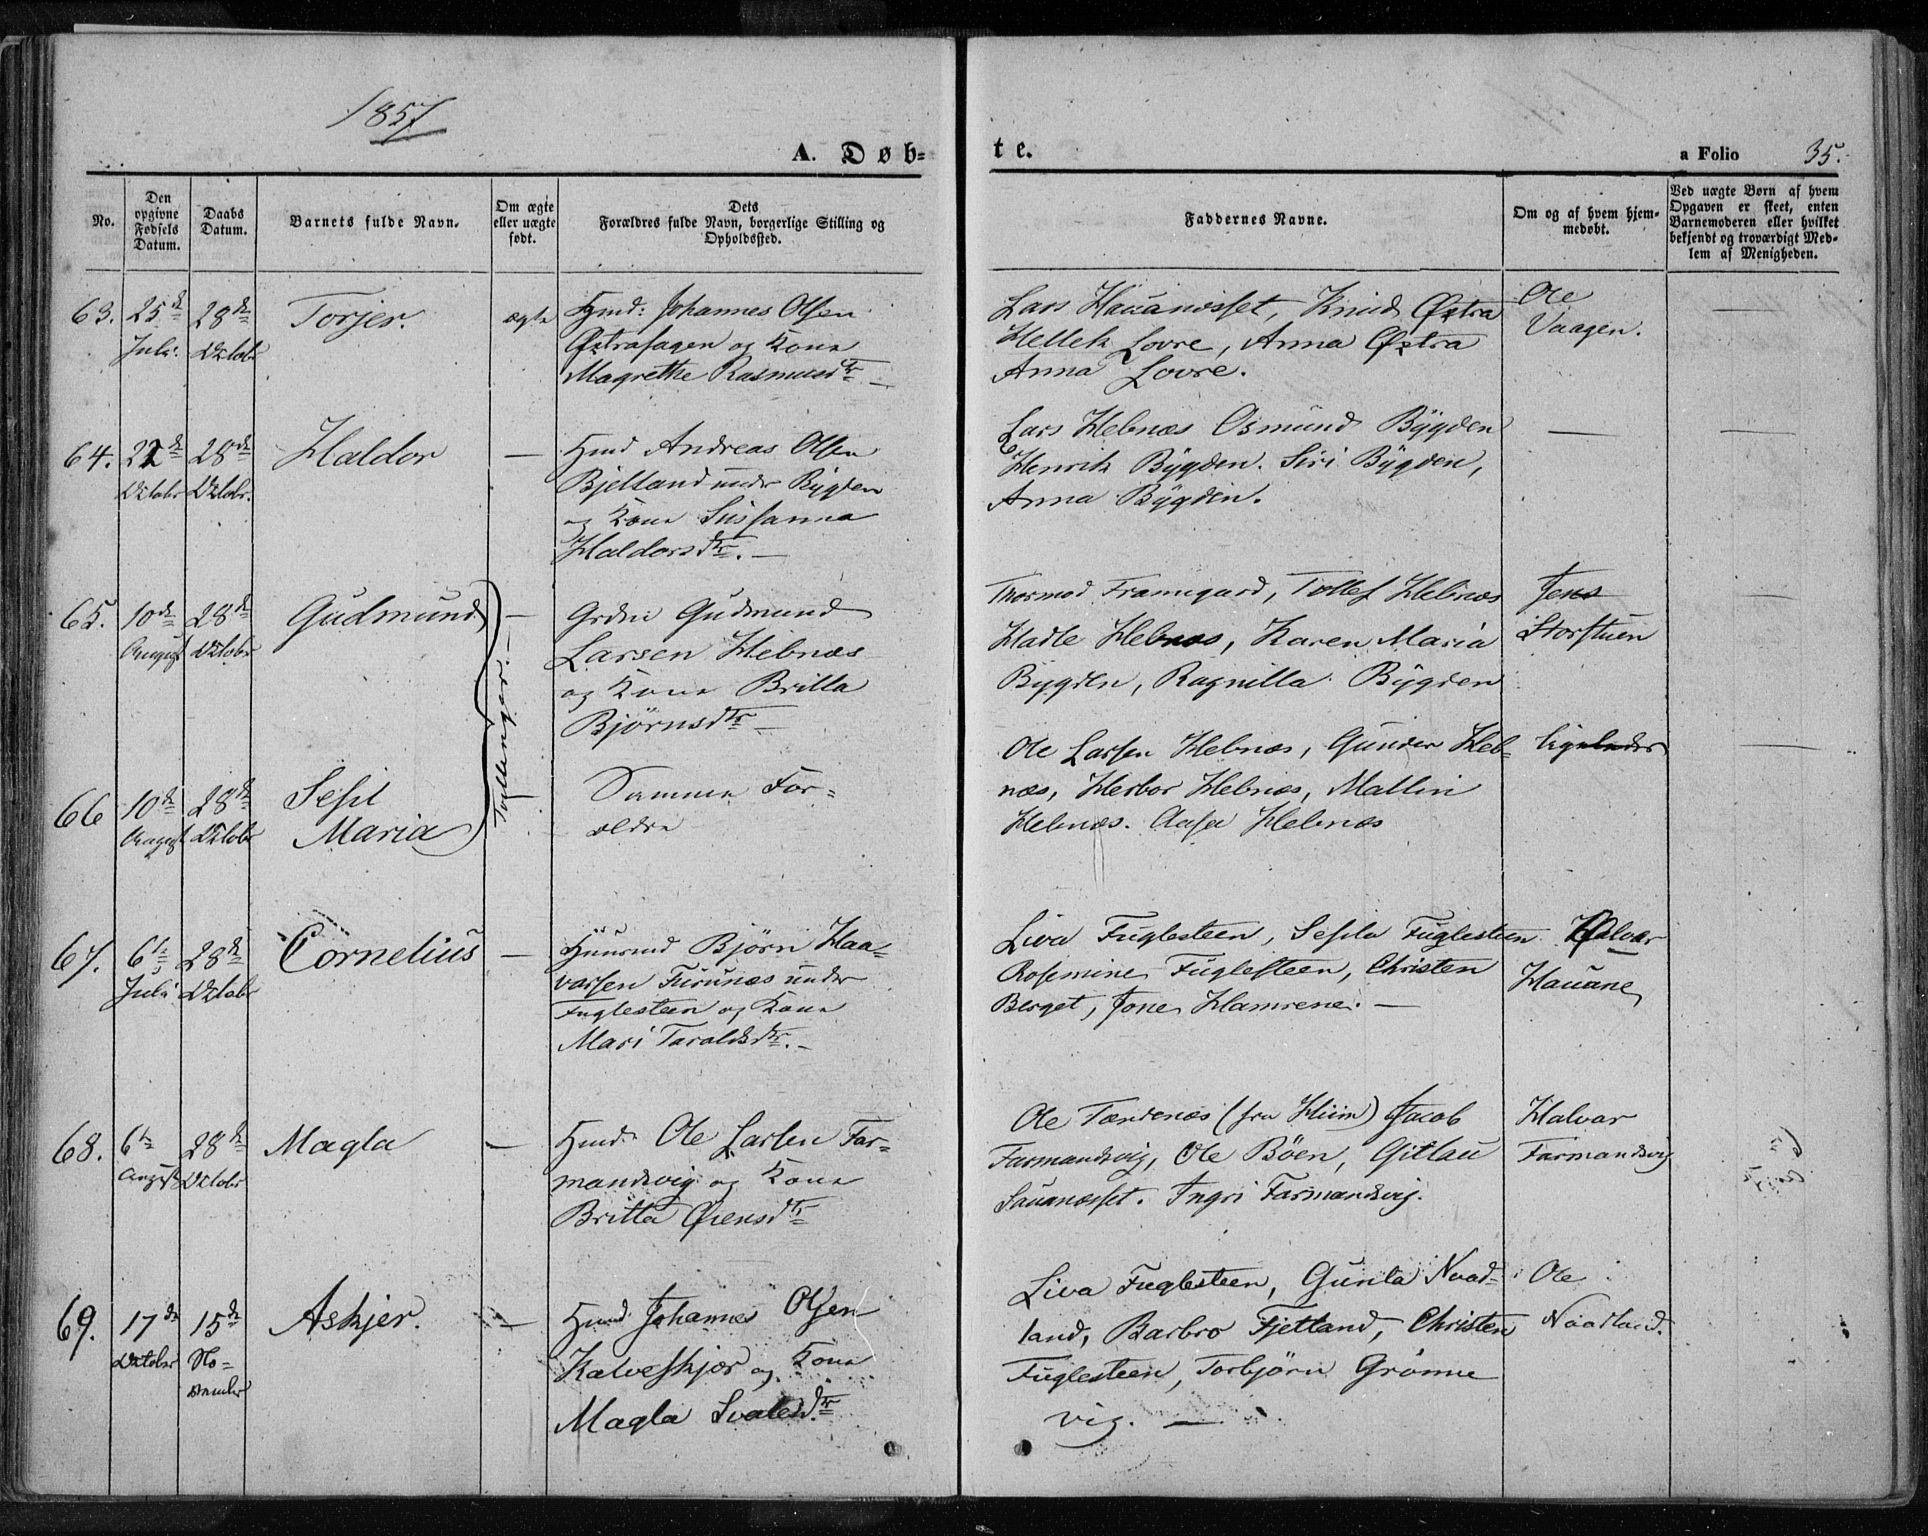 1857
A. Døb-
te.
a Folio 35.
No.
Den opgivne Fødsels Datum.
Daabs Datum.
Barnets fulde Navn.
Om ægte eller uægte født.
Dets Forældres fulde Navn, borgerlige Stilling og Opholdssted.
Faddernes Navne.
Om og af hvem hjemmedøbt.
Ved uægte Børn af hvem Opgaven er skeet, enten Barnemoderen eller hvilket bekjendt og troværdigt Medlem af Menigheden.
63. 25de Juli. 28de Octobr
Torjer.
ægte
Hmd: Johannes Olsen
Østrahagen og Kone
Magrethe Rasmusdtr. —
Lars Hauanesset, Knud Østra
Hellek Lovre, Anna Østra
Anna Lovre.
Ole
Vaagen.
64. 22de Octobr 28de Octobr.
Haldor
—
Hmd Andreas Olsen
Bjelland under Bygden
og Kone Sussanna
Haldorsdtr. —
Lars Hebnæs Osmund Bygden
Henrik Bygden. Siri Bygden,
Anna Bygden.
65. 10de August 28de Octobr
Gudmund
Tvillinger.
—
Grdm Gudmund
Larsen Hebnæs
og Kone Britta
Bjørnsdtr —
Thormod Framigard, Tollef Hebnæs
Hadle Hebnæs, Karen Maria
Bygden, Ragnilla Bygden
Jens
Storstuen
66 10de August 28de Octobr
Sesil
Maria
Samme For-
ældre
Ole Larsen Hebnæs, Gunder Heb-
næs, Herbor Hebnæs, Mallin
Hebnæs. Aasa Hebnæs
ligeledes
67. 6te Juli 28de Octobr
Cornelius
—
Huusmd Bjørn Haa-
varsen Furunæs under
Fuglesteen og Kone
Mari Taraldsdtr. —
Liva Fuglesteen, Sesila Fuglesteen
Rosemine Fuglesteen, Christen
Berget, Jone Hamrene. —
Halvar
Hauane
68. 6te August 28de Octobr
Magla
—
Hmd. Ole Larsen Far-
mandsvig og Kone
Britta Ørensdtr
Ole Tændenæs (fra Hiim) Jacob
Farmandsvig, Ole Böen, Gitlau
Sauanesset. Ingri Farmandsvig.
Halvar
Farmandsvig
69. 17de Octobr 15de No-
vember
Askjer.
—
Hmd Johannes Olsen
Kalveskjær og Kone
Magla Svalesdtr
Liva Fuglesteen, Gunla Naad-
land, Barbro Fjetland, Christen
Fuglesteen, Torbjörn Grönne
vig. —
Ole
Naadland.